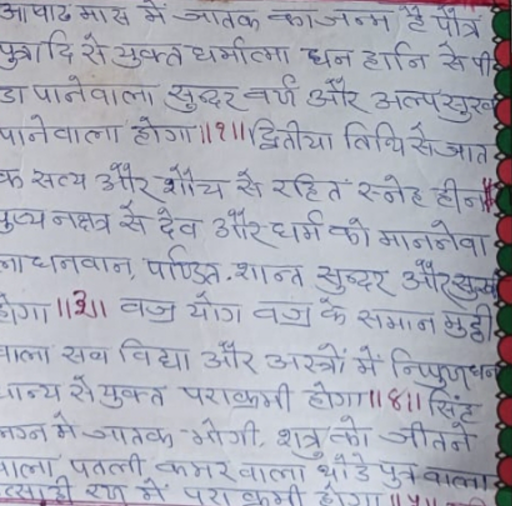 आषाढ मास में जातक का जन्म है पौत्र
पुत्रादि से युक्त धर्मात्मा धन हानि से पी
डा पानेवाला सुन्दर वर्ण और अल्प सुख
पानेवाला होगा॥१॥ द्वितीया तिथि से जात
क सत्य और शौच से रहित स्नेह हीन॥
पुष्य नक्षत्र से देव और धर्म को माननेवा
ला धनवान, पण्डित, शान्त सुन्दर और सुखी
होगा॥३॥ वज्र योग वज्र के समान मुट्ठी
वाला सब विद्या और अस्त्रों में निपुण धन
धान्य से युक्त पराक्रमी होगा॥४॥ सिंह
लग्न मे जातक भोगी, शत्रु को जीतने
वाला पतली कमर वाला थोडे पुत्र वाला
उत्साही रण में पराक्रमी होगा॥५॥